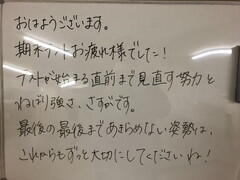 おはようございます。
期末テストお疲れ様でした！
テストが始まる直前まで見直す努力と
ねばり強さ、さすがです。
最後の最後まであきらめない姿勢は、
これからもずっと大切にしてくださいね！